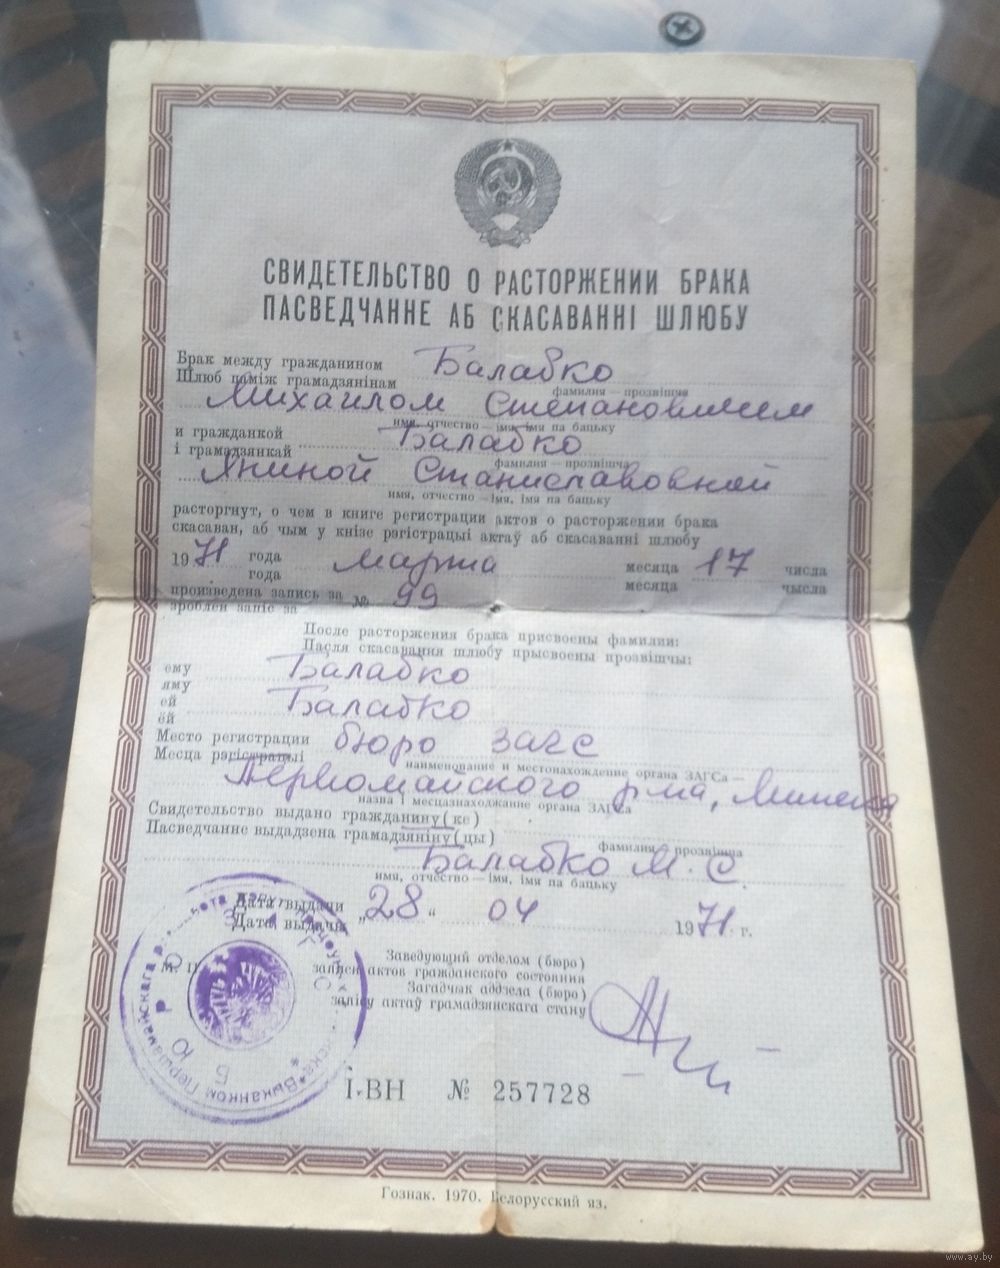 СВИДЕТЕЛЬСТВО О РАСТОРЖЕНИИ БРАКА
ПАСВЕДЧАННЕ АБ СКАСАВАННІ ШЛЮБУ
Брак между гражданином Балабко
Шлюб паміж грамадзянінам
фамилия — прозвішча
Михаилом Степановичем
имя, отчество — імя, імя па бацьку
и гражданкой Балабко
і грамадзянкай
фамилия — прозвішча
Яниной Станиславовной
имя, отчество — імя, імя па бацьку
расторгнут, о чем в книге регистрации актов о расторжении брака
скасаван, аб чым у кнізе рэгістрацыі актаў аб скасаванні шлюбу
1971 года марта месяца 17 числа
года месяца чысла
произведена запись за № 99
зроблен запіс за
После расторжения брака присвоены фамилии:
Пасля скасавання шлюбу прысвоены прозвішчы:
ему Балабко
яму
ей Балабко
ёй
Место регистрации бюро загс
Месца рэгістрацыі
наименование и местонахождение органа ЗАГСа —
Первомайского р-на, Минска
назва і месцазнаходжанне органа ЗАГСа
Свидетельство выдано гражданину(ке)
Пасведчанне выдадзена грамадзяніну(цы)
фамилия, прозвішча
Балабко М. С.
имя, отчество — імя, імя па бацьку
Дата выдачи „28“ 04 1971 г.
Дата выдачы
Заведующий отделом (бюро)
М. П. записи актов гражданского состояния
Загадчык аддзела (бюро)
запісу актаў грамадзянскага стану
БЮРО ЗАГС
Выканком Першамайскага
І-ВН № 257728
Гознак. 1970. Белорусский яз.
www.ay.by